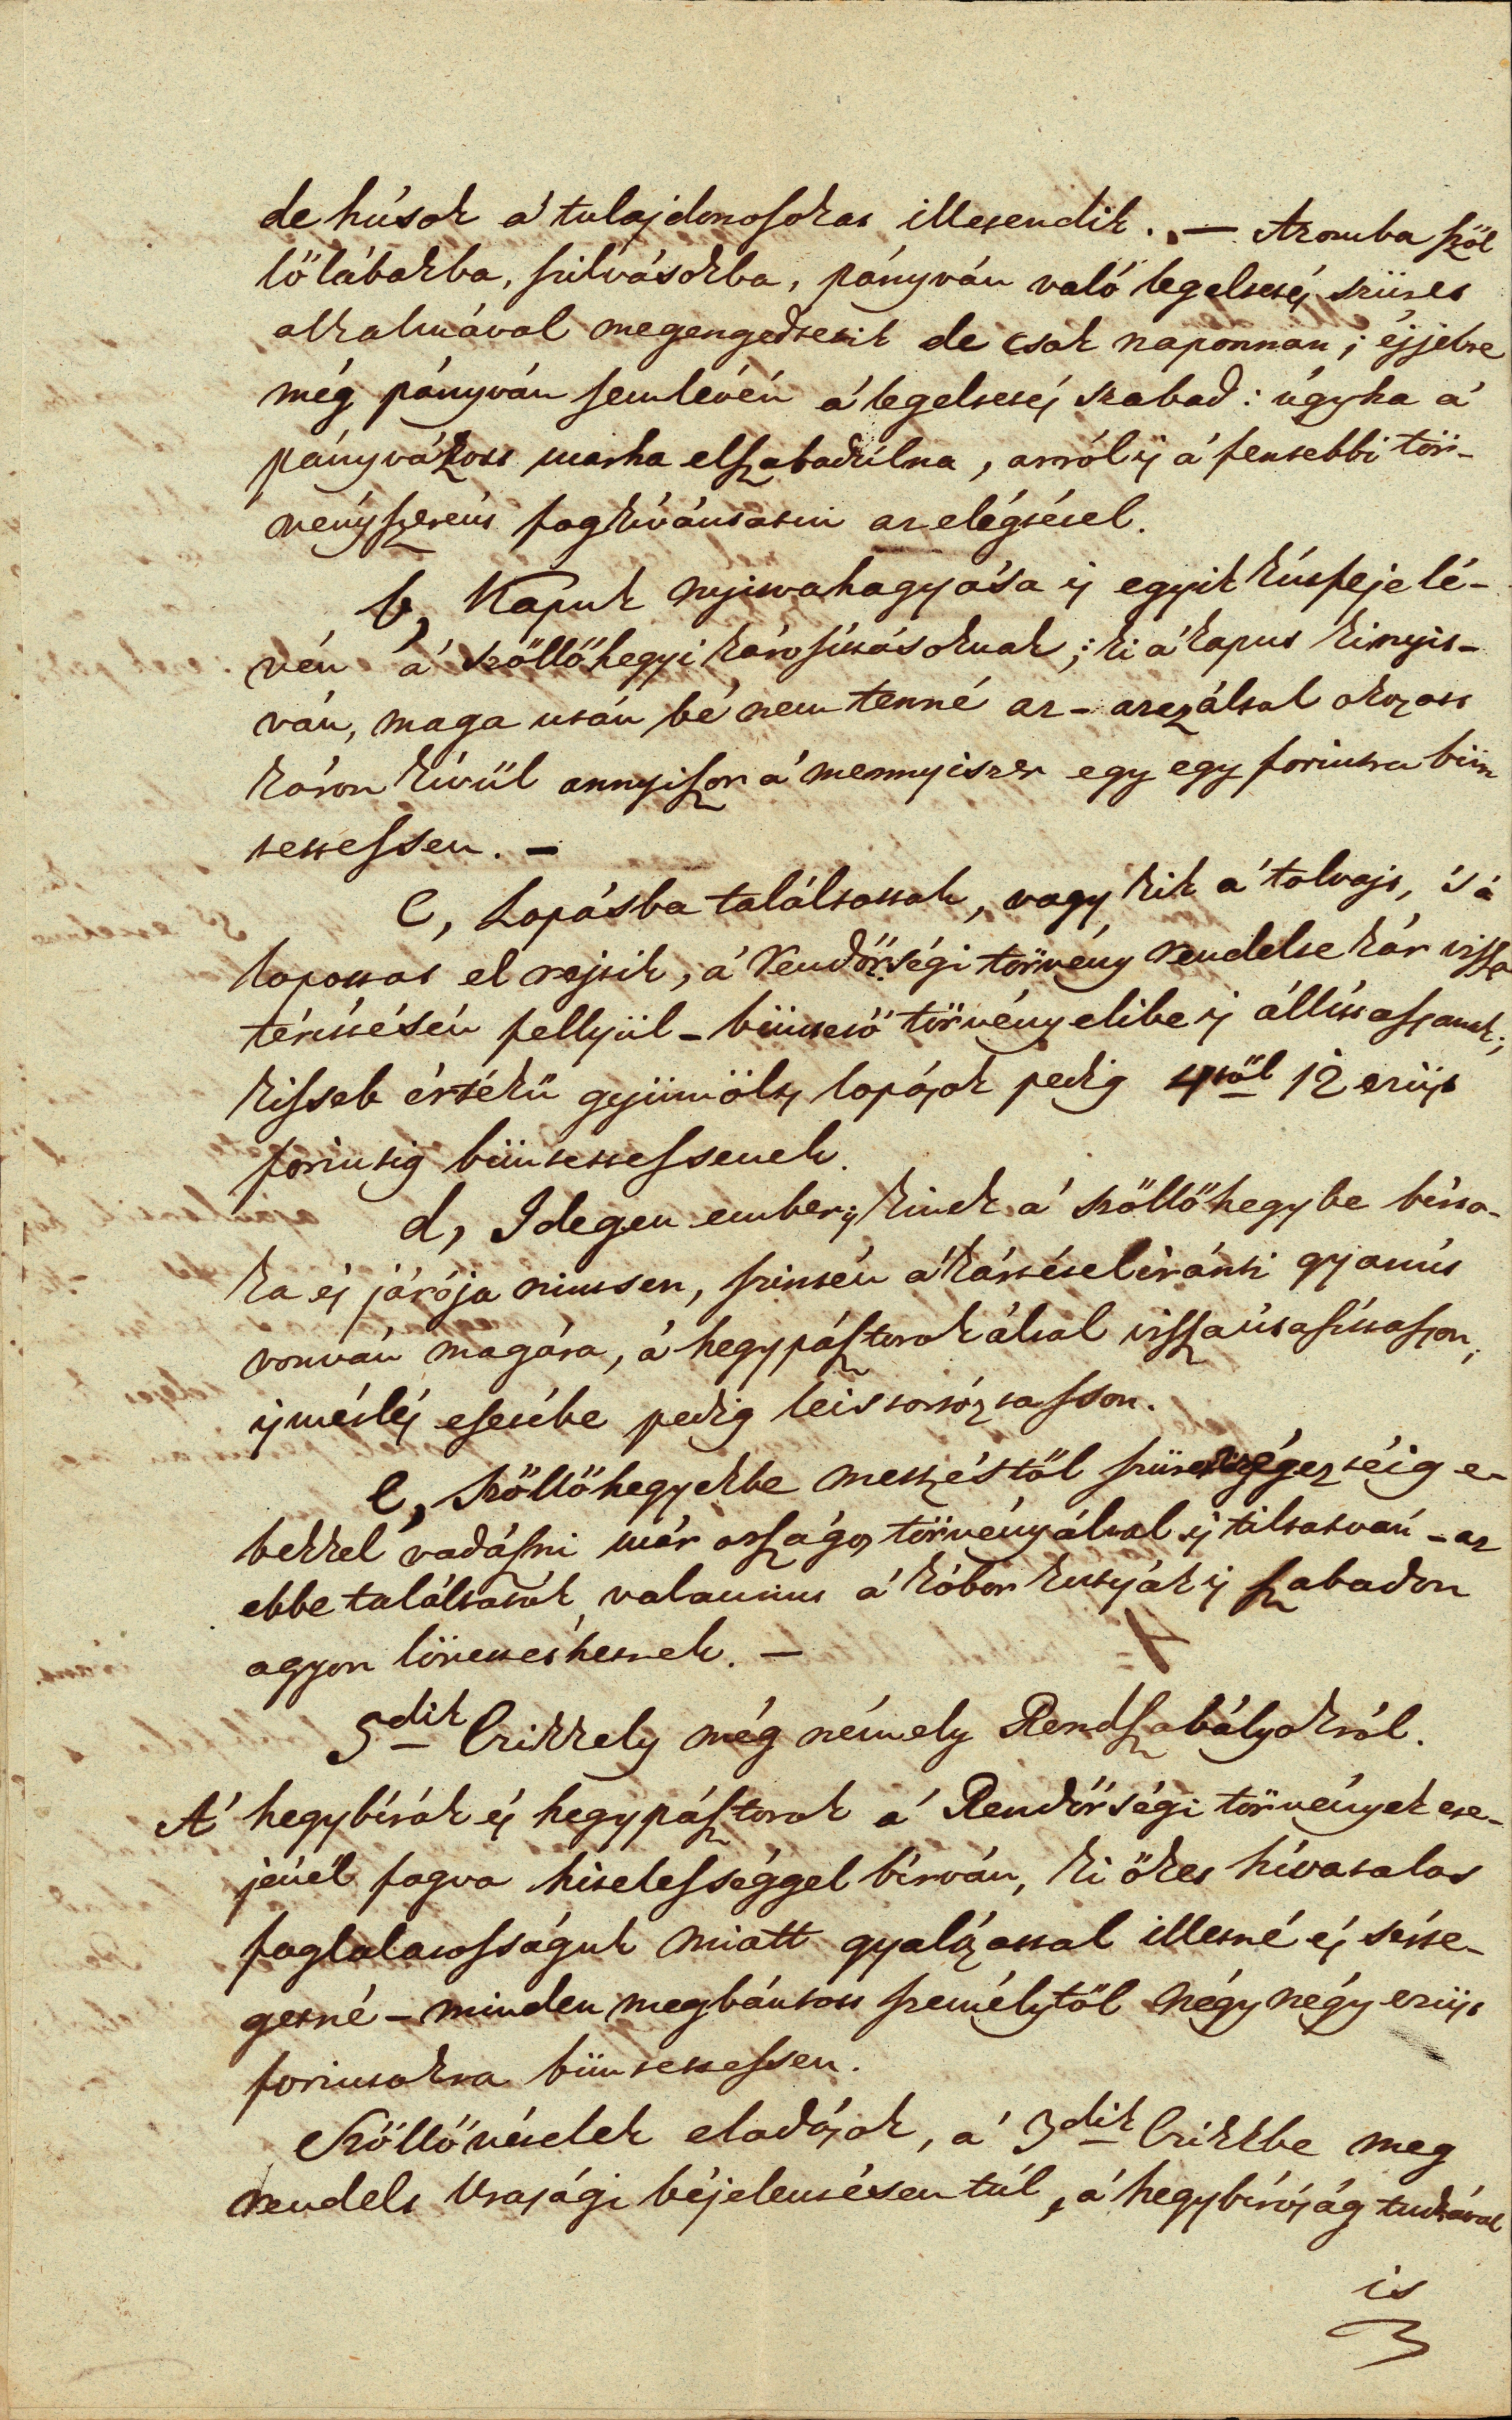 de húsok a' tulajdonosokat illetendik. — Azomba szöl
lőlábakba, szilvásokba, pányván való legeltetés szüret
alkalmával megengedtetik de csak naponnan; éjjelre
még pányván sem lévén a' legeltetés szabad: úgy ha a'
pányvázott marha elszabadúlna, arról is a' fentebbi tör-
vényszerént fog kívántatni az elégtétel.
b, Kapuk nyitvahagyása is egyik kútfeje lé-
vén a' szöllőhegyi károsításoknak; ki a' kaput kinyit-
ván, maga után bé nem tenné az - azáltal okozott
káron kívül annyiszor a' mennyiszer egy egy forintra bün
tettessen. —
c, Lopásba találtattak, vagy kik a' tolvajt, 's a'
lopottat el rejtik, a' Rendőrségi törvény rendelte kár vissza
térítésén fellyül - büntető törvény elibe is állíttassanak;
kisseb értékű gyümölts lopások pedig 4től 12 ezüst
forintig büntettessenek.
d, Idegen ember, is kinek a' szöllőhegybe birto-
ka és járója nintsen, szintén a' kártétel iránti gyanút
vonván magára, a' hegypásztorok által vissza útasíttasson,
ismétlés esetébe pedig letartóztasson.
e, Szöllőhegyekbe metszéstől szüret végeztéig e-
bekkel vadászni már országos törvény által is tiltatván - az
ebbe találtatók, valamint a' kóbor kutyák is szabadon
agyon lövettethetnek. —
5dik Czikkely még némely Rendszabályokról.
A' hegybírák és hegypásztorok a' Rendőrségi törvények ere-
jénél fogva hitelességgel bírván, ki őket hívatalos
foglalatosságuk miatt gyalázattal illetné és sérte-
getné - minden megbántott személytől négy négy ezüst
forintokra büntettessen.
Szöllővételek eladások, a' 3dik Czikkbe meg
rendelt Urasági béjelentésen túl, a' hegybíróság tudtával
is